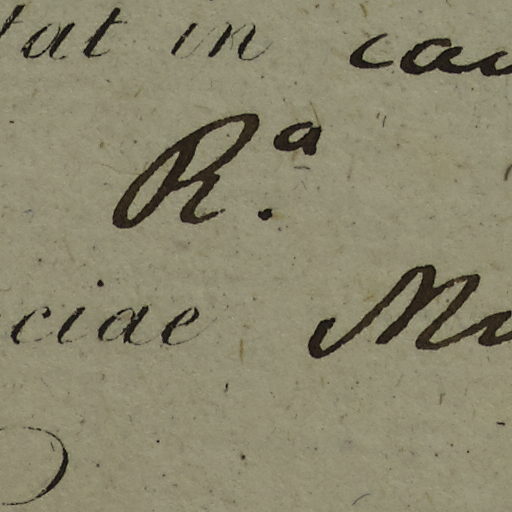 tat in cau
R.ª
ciae Mu